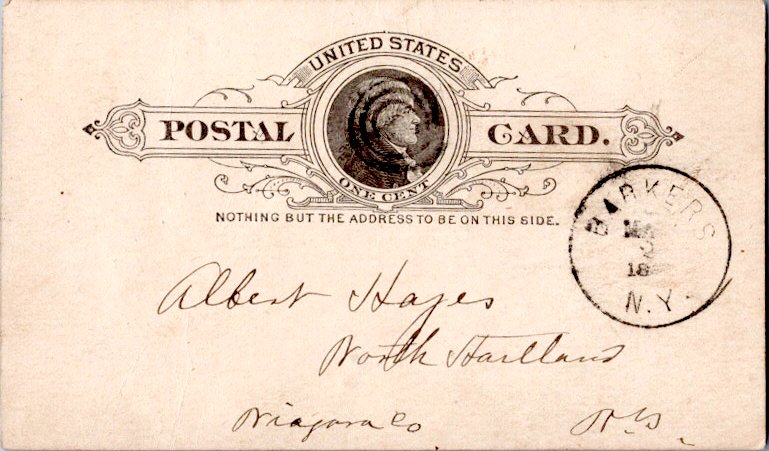 UNITED STATES
POSTAL CARD.
ONE CENT
NOTHING BUT THE ADDRESS TO BE ON THIS SIDE.
BARKERS
2
18
N.Y.
Albert Hayes
North Hartland
Niagara Co N.Y.